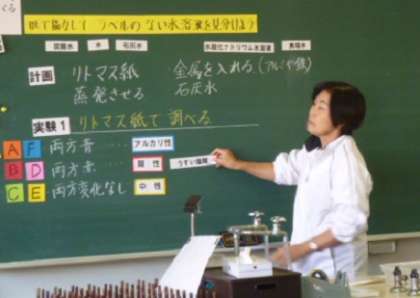 くる
ラベルのない水溶液を見分けよう
炭酸水 水 石灰水 水酸化ナトリウム水溶液 食塩水
計画 リトマス紙 金属を入れる(アルミや鉄)
蒸発させる 石灰水
実験1 リトマス紙で調べる
A F 両方青 … アルカリ性
B D 両方赤 … 酸性 うすい塩酸
C E 両方変化なし 中性